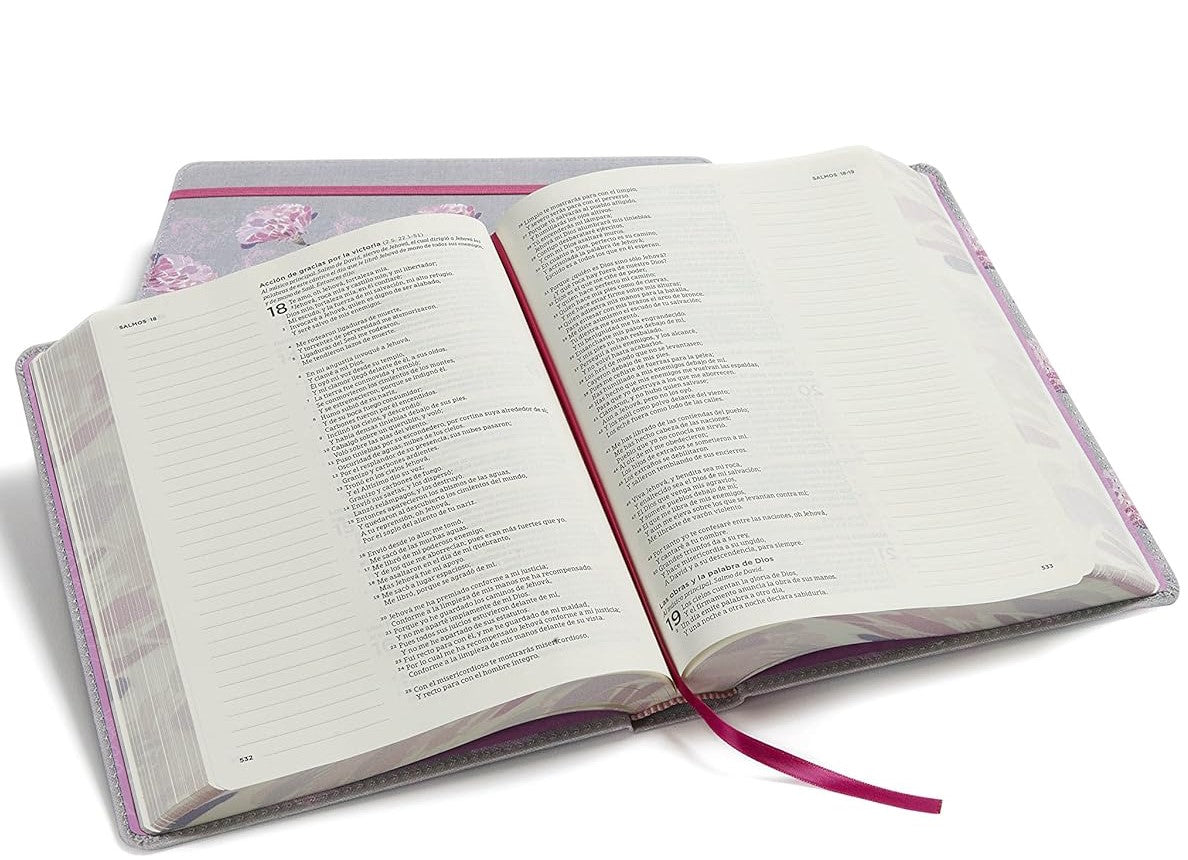 SALMOS 18
Acción de gracias por la victoria (2 S. 22.1-51)
Al músico principal. Salmo de David, siervo de Jehová, el cual dirigió a Jehová las
palabras de este cántico el día que le libró Jehová de mano de todos sus enemigos,
y de mano de Saúl. Entonces dijo:
18 Te amo, oh Jehová, fortaleza mía.
2 Jehová, roca mía y castillo mío, y mi libertador;
Dios mío, fortaleza mía, en él confiaré;
Mi escudo, y la fuerza de mi salvación, mi alto refugio.
3 Invocaré a Jehová, quien es digno de ser alabado,
Y seré salvo de mis enemigos.
4 Me rodearon ligaduras de muerte,
Y torrentes de perversidad me atemorizaron.
5 Ligaduras del Seol me rodearon,
Me tendieron lazos de muerte.
6 En mi angustia invoqué a Jehová,
Y clamé a mi Dios.
Él oyó mi voz desde su templo,
Y mi clamor llegó delante de él, a sus oídos.
7 La tierra fue conmovida y tembló;
Se conmovieron los cimientos de los montes,
Y se estremecieron, porque se indignó él.
8 Humo subió de su nariz,
Y de su boca fuego consumidor;
Carbones fueron por él encendidos.
9 Inclinó los cielos, y descendió;
Y había densas tinieblas debajo de sus pies.
10 Cabalgó sobre un querubín, y voló;
Voló sobre las alas del viento.
11 Puso tinieblas por su escondedero, por cortina suya alrededor de sí;
Oscuridad de aguas, nubes de los cielos.
12 Por el resplandor de su presencia, sus nubes pasaron;
Granizo y carbones ardientes.
13 Tronó en los cielos Jehová,
Y el Altísimo dio su voz;
Granizo y carbones de fuego.
14 Envió sus saetas, y los dispersó;
Lanzó relámpagos, y los destruyó.
15 Entonces aparecieron los abismos de las aguas,
Y quedaron al descubierto los cimientos del mundo,
A tu reprensión, oh Jehová,
Por el soplo del aliento de tu nariz.
16 Envió desde lo alto; me tomó,
Me sacó de las muchas aguas.
17 Me libró de mi poderoso enemigo,
Y de los que me aborrecían; pues eran más fuertes que yo.
18 Me asaltaron en el día de mi quebranto,
Mas Jehová fue mi apoyo.
19 Me sacó a lugar espacioso;
Me libró, porque se agradó de mí.
20 Jehová me ha premiado conforme a mi justicia;
Conforme a la limpieza de mis manos me ha recompensado.
21 Porque yo he guardado los caminos de Jehová,
Y no me aparté impíamente de mi Dios.
22 Pues todos sus juicios estuvieron delante de mí,
Y no me he apartado de sus estatutos.
23 Fui recto para con él, y me he guardado de mi maldad,
24 Por lo cual me ha recompensado Jehová conforme a mi justicia;
Conforme a la limpieza de mis manos delante de su vista.
25 Con el misericordioso te mostrarás misericordioso,
Y recto para con el hombre íntegro.
532
SALMOS 18-19
26 Limpio te mostrarás para con el limpio,
Y severo serás para con el perverso.
27 Porque tú salvarás al pueblo afligido,
Y humillarás los ojos altivos.
28 Tú encenderás mi lámpara;
Jehová mi Dios alumbrará mis tinieblas.
29 Contigo desbarataré ejércitos,
Y con mi Dios asaltaré muros.
30 En cuanto a Dios, perfecto es su camino,
Y acrisolada la palabra de Jehová;
Escudo es a todos los que en él esperan.
31 Porque ¿quién es Dios sino sólo Jehová?
¿Y qué roca hay fuera de nuestro Dios?
32 Dios es el que me ciñe de poder,
Y quien hace perfecto mi camino;
33 Quien hace mis pies como de ciervas,
Y me hace estar firme sobre mis alturas;
34 Quien adiestra mis manos para la batalla,
Para entesar con mis brazos el arco de bronce.
35 Me diste asimismo el escudo de tu salvación;
Tu diestra me sustentó,
Y tu benignidad me ha engrandecido.
36 Ensanchaste mis pasos debajo de mí,
Y mis pies no han resbalado.
37 Perseguí a mis enemigos, y los alcancé,
Y no volví hasta acabarlos.
38 Los herí de modo que no se levantasen;
Cayeron debajo de mis pies.
39 Pues me ceñiste de fuerzas para la pelea;
Has humillado a mis enemigos debajo de mí.
40 Has hecho que mis enemigos me vuelvan las espaldas,
Para que yo destruya a los que me aborrecen.
41 Clamaron, y no hubo quien salvase;
Aun a Jehová, pero no los oyó.
42 Y los molí como polvo delante del viento;
Los eché fuera como lodo de las calles.
43 Me has librado de las contiendas del pueblo;
Me has hecho cabeza de las naciones;
Pueblo que yo no conocía me sirvió.
44 Al oír de mí me obedecieron;
Los hijos de extraños se sometieron a mí.
45 Los extraños se debilitaron
Y salieron temblando de sus encierros.
46 Viva Jehová, y bendita sea mi roca,
Y enaltecido sea el Dios de mi salvación;
47 El Dios que venga mis agravios,
Y somete pueblos debajo de mí;
48 El que me libra de mis enemigos,
Y aun me eleva sobre los que se levantan contra mí;
Me libraste de varón violento.
49 Por tanto yo te confesaré entre las naciones, oh Jehová,
Y cantaré a tu nombre.
50 Grandes triunfos da a su rey,
Y hace misericordia a su ungido,
A David y a su descendencia, para siempre.
Las obras y la palabra de Dios
Al músico principal. Salmo de David.
19 Los cielos cuentan la gloria de Dios,
Y el firmamento anuncia la obra de sus manos.
2 Un día emite palabra a otro día,
Y una noche a otra noche declara sabiduría.
533